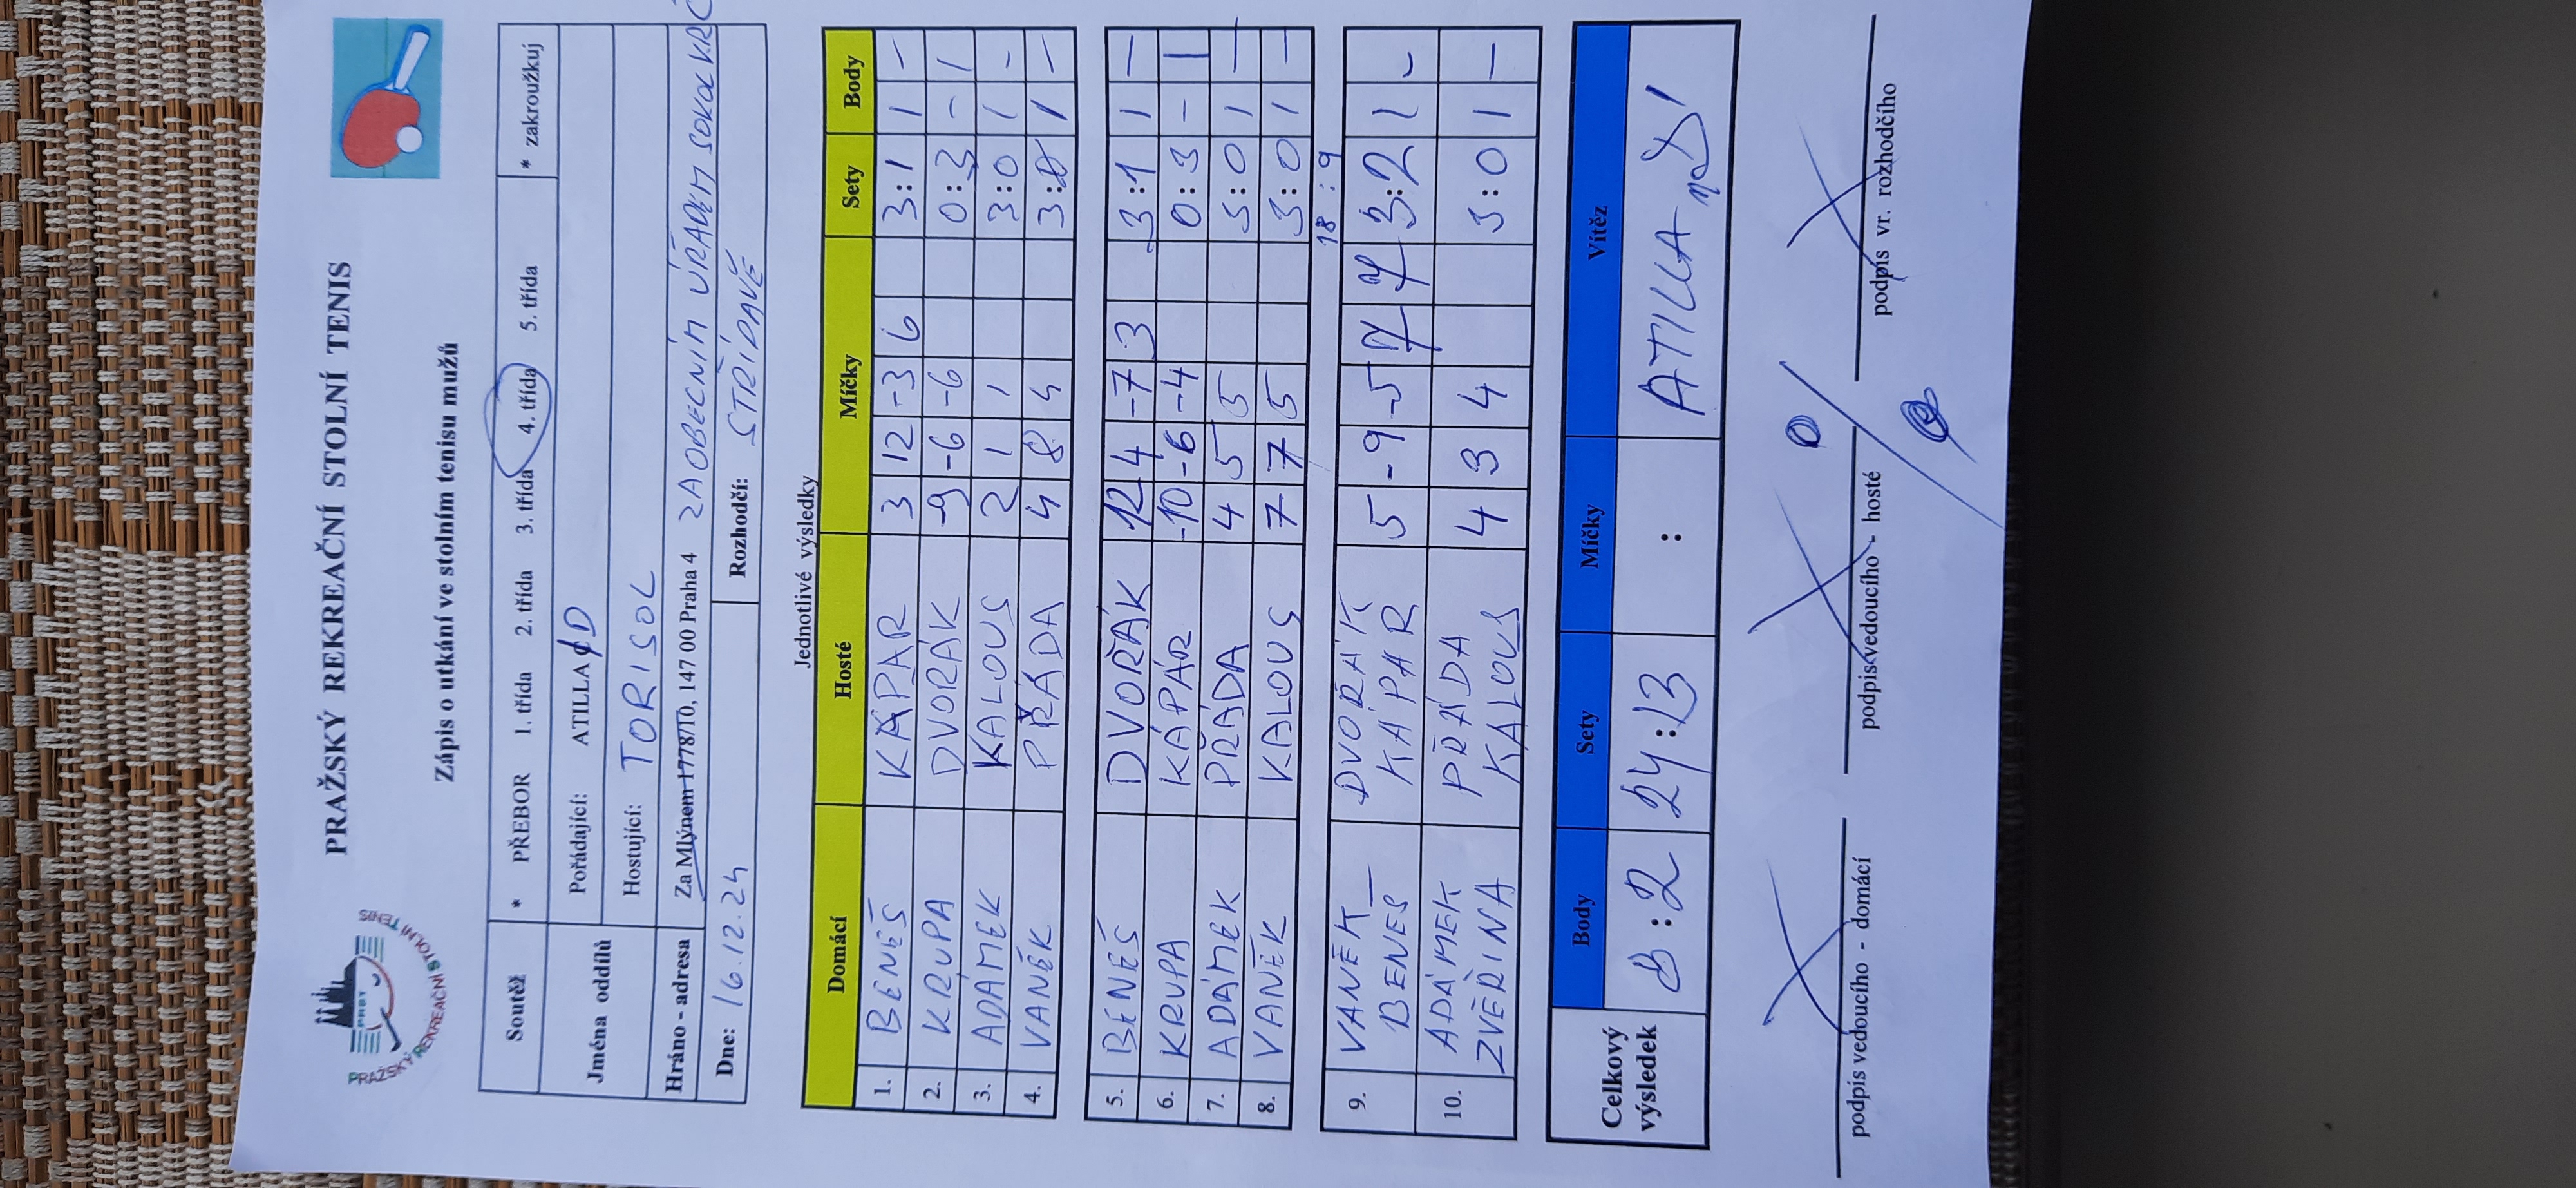 PRAŽSKÝ REKREAČNÍ STOLNÍ TENIS
PRAŽSKÝ REKREAČNÍ STOLNÍ TENIS
Zápis o utkání ve stolním tenisu mužů
Soutěž * PŘEBOR 1. třída 2. třída 3. třída 4. třída 5. třída * zakroužkuj
Jména oddílů Pořádající: ATILLA D
Hostující: TORISOL
Hráno - adresa Za Mlýnem 1778/10, 147 00 Praha 4 ZA OBECNÍM ÚŘADEM SOKOL KRČ
Dne: 16.12.24 Rozhodčí: STŘÍDAVĚ
Jednotlivé výsledky
Domácí Hosté Míčky Sety Body
1. BENEŠ KÁPAR 3 12 -3 6 3:1 1 -
2. KRUPA DVORÁK -9 -6 -6 0:3 - 1
3. ADÁMEK KALOUS 2 1 1 3:0 1 -
4. VANĚK PŘÁDA 4 8 4 3:0 1 -
5. BENEŠ DVOŘÁK 12 4 -7 3 3:1 1 -
6. KRUPA KÁPÁR -10 -6 -4 0:3 - 1
7. ADÁMEK PŘÁDA 4 5 5 3:0 1 -
8. VANĚK KALOUS 7 7 5 3:0 1 -
18:9
9. VANĚK DVOŘÁK 5 -9 -5 7 7 3:2 1 -
BENEŠ KÁPAR
10. ADÁMEK PŘÁDA 4 3 4 3:0 1 -
ZVĚŘINA KALOUS
Celkový výsledek Body Sety Míčky Vítěz
8:2 24:13 : ATILLA "D"
podpis vedoucího - domácí podpis vedoucího - hosté podpis vr. rozhodčího